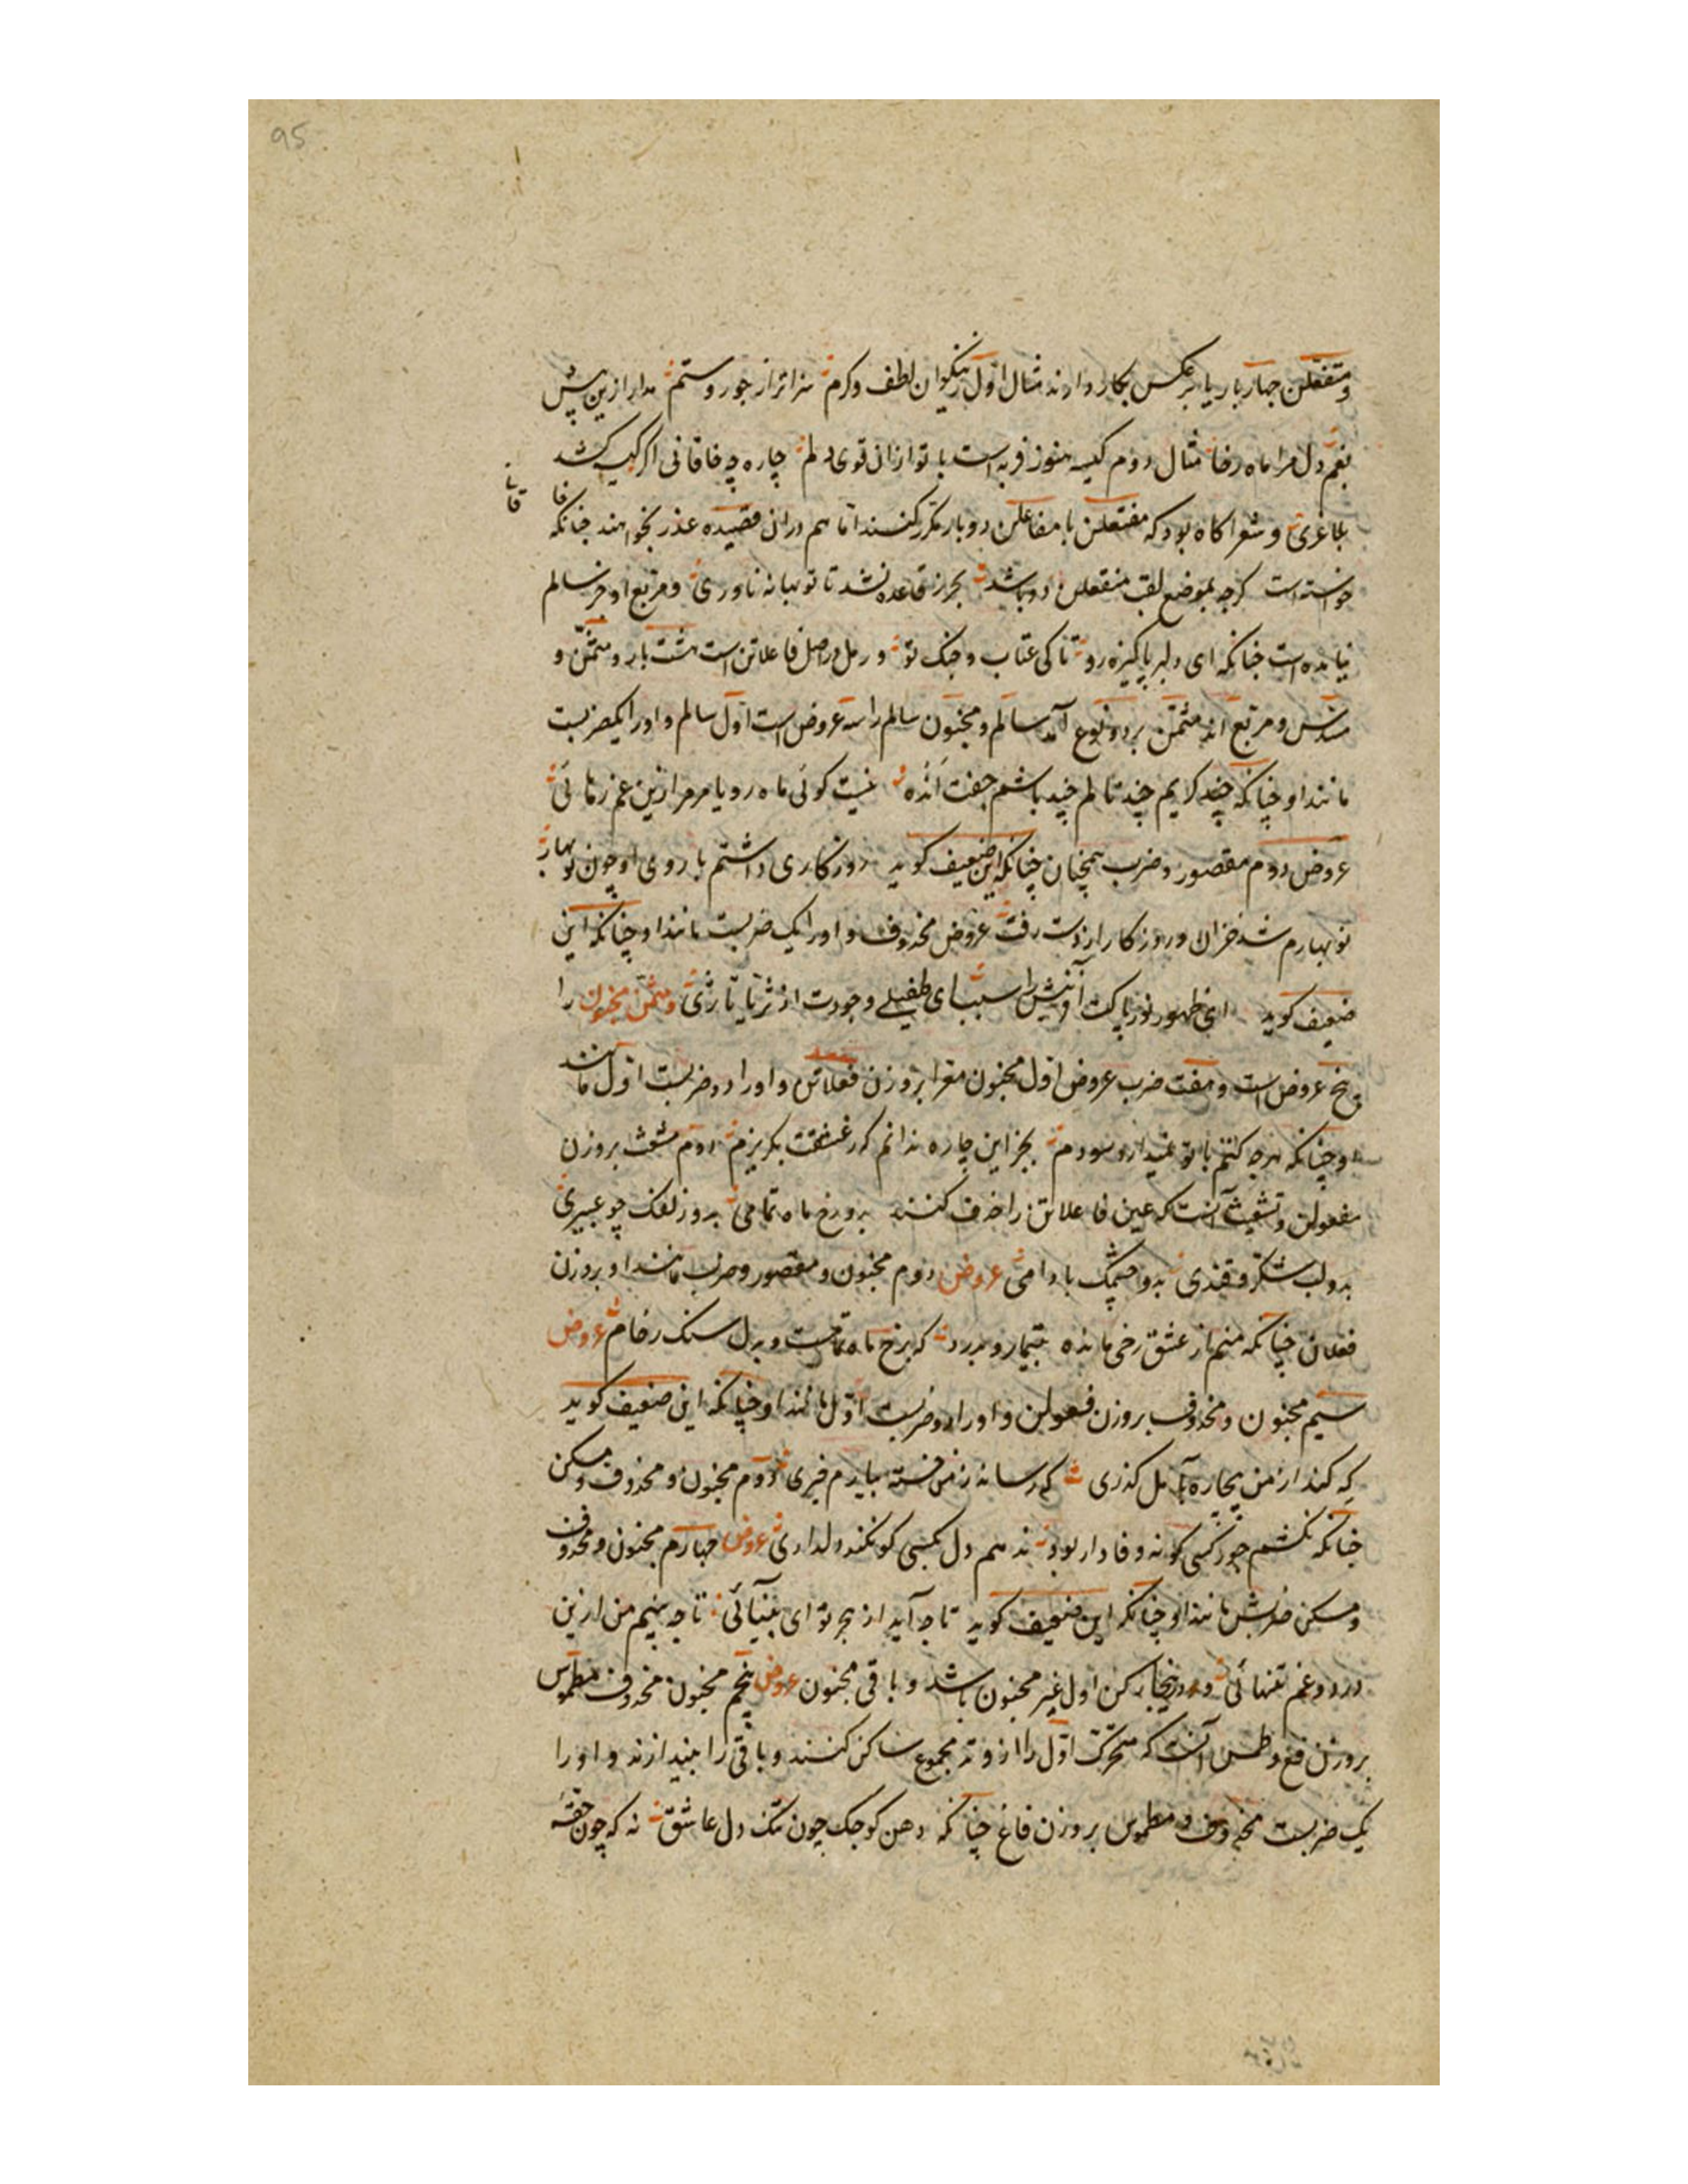 95
و مفتعلن چهار بار یا برعکس بکار دارند مثال اول ز نیکوان لطف و کرم سزاتر از جور و ستم مدار ازین پس
بغم دل مرا ماه رخا مثال دوم کیسه هنوز فربه است با تو ازان قوی دلم چاره چه خاقانی اگر کیسه کشد
بلاغری و شعرا گاه بود که مفتعلن با مفاعلن دو بار مکرر کنند اما هم دران قصیده عذر بخواهند چنانکه
خا
قا
خواسته است گرچه بموضع لقب مفتعلن دو باشد بحر ز قاعده نشد تا تو بهانه ناوری و مربع او جز سالم
نیامده است چنانکه ای دلبر پاکیزه رو تا کی عتاب و جنک تو و رمل در اصل فاعلاتن است هشت بار و مثمن و
مسدس و مربع آید مثمن بر دو نوع آمد سالم و مخبون سالم را سه عروض است اول سالم و او را یکضربست
مانند او چنانکه چند کریم چند نالم چند باشم جفت انده نیست کوئی ماه رویا مر مرا زین غم رهائی
عروض دوم مقصور و ضرب همچنان چنانکه این ضعیف کوید روزکاری داشتم با روی او چون نوبهار
نوبهارم شد خزان و روزکار از دست رفت عروض محذوف و او را یک ضربست مانند او چنانکه این
ضعیف کوید ای ظهور نور پاکت آفرینش را سبب ای طفیل وجودت از ثریا تا ثری و مثمن مخبون را
پنج عروض است و هفت ضرب عروض اول مخبون معرا بر وزن فعلاتن و او را دو ضربست اول مانند
او چنانکه هرچه کفتم با تو نمیدارد سودم بجز این چاره ندانم که ز عشقت بکریزم دوم مشعث بر وزن
مفعولن و تشعیث آنست که عین فاعلاتن را حذف کنند بدو رخ ماه تمامی بدو زلفک چو عبیری
بدو لب شکر و قندی بدو چشمک بادامی عروض دوم مخبون و مقصور و ضرب مانند او بر وزن
فعلان چنانکه منم از عشق رخی مانده بتیمار و بدرد که برخ ماه تمامست و بدل سنک رخام عروض
سیم مخبون و محذوف بر وزن فعولن و او را دو ضربست اول مانند او چنانکه این ضعیف کوید
که کند از من بیچاره بآمل کذری که رساند ز من خسته بیارم خبری دوم مخبون و محذوف و مسکن
چنانکه نکشم جور کسی کو نه وفادار بود ندهم دل بکسی کو نکند دلداری عروض چهارم مخبون و محذوف
و مسکن ضربش مانند او چنانکه این ضعیف کوید تا چه آید از هجر تو ای بینائی تا چه بینم من ازین
درد و غم تنهائی و درینجا رکن اول غیر مخبون باشد و باقی مخبون عروض پنجم مخبون محذوف مطموس
بر وزن فع و طمس آنست که متحرک اول را از وتد مجموع ساکن کنند و باقی را بیندازند و او را
یک ضربست محذوف و مطموس بر وزن فاع چنانکه دهن کوچک چون تنک دل عاشق نه که چون حقه